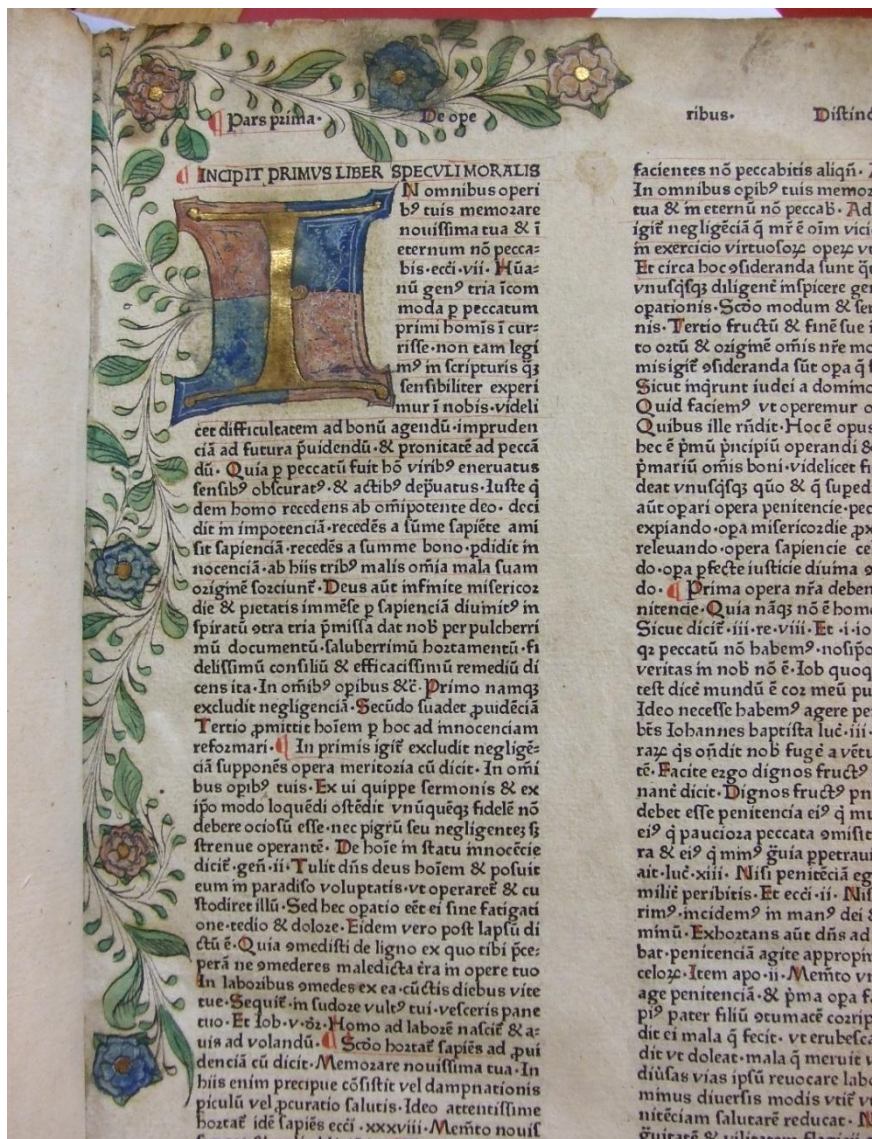 Pars prima· De ope ribus· Distinc
INCIPIT PRIMVS LIBER SPECVLI MORALIS
IN omnibus operi
bꝰ tuis memorare
nouiſſima tua & ī
eternum nō pecca⸗
bis·ecci·vii· Hūa⸗
nū genꝰ tria īcom
moda p peccatum
primi homīs ī cur⸗
riſſe·non tam legi
mꝰ in ſcripturis qꝫ
ſenſibiliter experi
mur ī nobis·videli
cet difficultatem ad bonū agendū·impruden
ciā ad futura p̄uidendū·& pronitatē ad peccā
dū· Quia p peccatū fuit hō viribꝰ eneruatus
ſenſibꝰ obſcuratꝰ·& actibꝰ dep̄uatus·Iuſte q̄
dem homo recedens ab om̄ipotente deo· deci
dit in impotenciā·recedēs a ſūme ſapiēte ami
ſit ſapienciā·recedēs a ſumme bono·pdidit in
nocenciā·ab hiis tribꝰ malis om̄ia mala ſuam
originē ſorciunt̄·Deus aūt infinite miſericor
die & pietatis immēſe p ſapienciā diuinitꝰ in
ſpiratū ꝯtra tria p̄miſſa dat nob̄ per pulcherri
mū documentū·ſaluberrimū hortamentū·fi
deliſſimū conſiliū & efficaciſſimū remediū di
cens ita·In om̄ibꝰ opibus &c̄· Primo namqꝫ
excludit negligenciā·Secūdo ſuadet ꝓuidēciā
Tertio ꝓmittit hoīem p hoc ad innocenciam
reformari· In primis igit̄ excludit negligē⸗
ciā ſupponēs opera meritoria cū dicit· In om̄i
bus opibꝰ tuis·Ex ui quippe ſermonis & ex
ip̄o modo loquēdi oſtēdit vnūquēqꝫ fidelē nō
debere ocioſū eſſe·nec pigrū ſeu negligenteꝫ ſꝫ
ſtrenue operantē· De hoīe in ſtatu innocēcie
dicit̄·gen̄·ii·Tulit dn̄s deus hoīem & poſuit
eum in paradiſo voluptatis·vt operaret̄ & cu
ſtodiret illū·Sed hec opatio eēt ei ſine fatigati
one·tedio & dolore·Eidem vero poſt lapſū di
ctū ē·Quia ꝯmediſti de ligno ex quo tibi p̄ce⸗
perā ne ꝯmederes maledicta t̄ra in opere tuo
In laboribus ꝯmedes ex ea·cūctis diebus vite
tue·Sequit̄·in ſudore vultꝰ tui·veſceris pane
tuo·Et Iob·v·dꝛ·Homo ad laborē naſcit̄ & a⸗
uis ad volandū· Scd̄o hortat̄ ſapiēs ad ꝓui
denciā cū dicit·Memorare nouiſſima tua·In
hiis enim precipue cōſiſtit vel dampnationis
piculū vel ꝓcuratio ſalutis·Ideo attentiſſime
hortat̄ idē ſapiēs ecci·xxxviii·Mem̄to nouiſ
facientes nō peccabitis aliqn̄·
In omnibus opibꝰ tuis memor
tua & in eternū nō peccab̄· Ad
igit̄ negligēciā q̄ mr̄ ē oīm vici
in exercicio virtuoſoꝝ opeꝝ v
Et circa hoc ꝯſideranda ſunt q̄
vnuſqſqꝫ diligent̄ inſpicere ge
opationis·Scd̄o modum & ſe
nis·Tertio fructū & finē ſue i
to ortū & originē om̄is nr̄e m
mis igit̄ ꝯſideranda ſūt opa q̄
Sicut inq̄runt iudei a domin
Quid faciemꝰ vt operemur o
Quibus ille rn̄dit·Hoc ē opus
hec ē p̄mū p̄ncipiū operandi &
p̄mariū om̄is boni·videlicet fi
deat vnuſqſqꝫ quō & q̄ ſuped
aūt opari opera penitencie·pec
expiando·opa miſericordie ꝓx
releuando·opera ſapiencie ce
do·opa pfecte iuſticie diuina
do· Prima opera nr̄a deben
nitencie·Quia nāqꝫ nō ē hom
Sicut dicit̄·iii·re·viii·Et·i·io
qꝛ peccatū nō habemꝰ·noſip̄o
veritas in nob̄ nō ē·Iob quoq
teſt dicē mundū ē cor meū pu
Ideo neceſſe habemꝰ agere pe
bt̄s Iohannes baptiſta luc̄·iii·
raꝝ q̄s on̄dit nob̄ fugē a vētu
tē·Facite ergo dignos fructꝰ
nant̄ dicit·Dignos fructꝰ pn
debet eſſe penitencia eiꝰ q̄ mu
eiꝰ q̄ pauciora peccata ꝯmiſit
ra & eiꝰ q̄ minꝰ ḡuia ppetraui
ait·luc̄·xiii· Niſi penitēciā eg
milit̄ peribitis·Et ecci·ii· Niſ
rimꝰ·incidemꝰ in manꝰ dei
minū·Exhortans aūt dn̄s ad
bat·penitenciā agite appropin
celoꝝ·Item apo·ii·Mem̄to v
age penitenciā·& p̄ma opa f
piꝰ pater filiū ꝯtumacē corrip
dit ei mala q̄ fecit· vt erubeſca
dit vt doleat·mala q̄ meruit
diūſas vias ipſū reuocare labo
minus diuerſis modis vtit̄ v
nitēciam ſalutarē reducat·